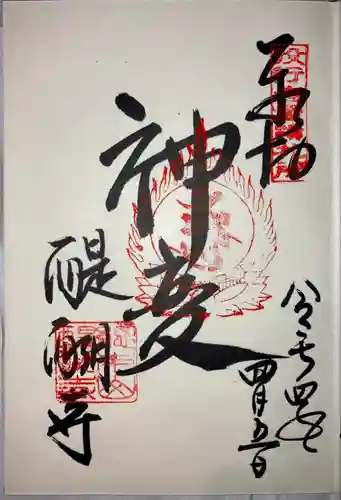 奉拝
令和四年
四月五日
神変
醍醐寺